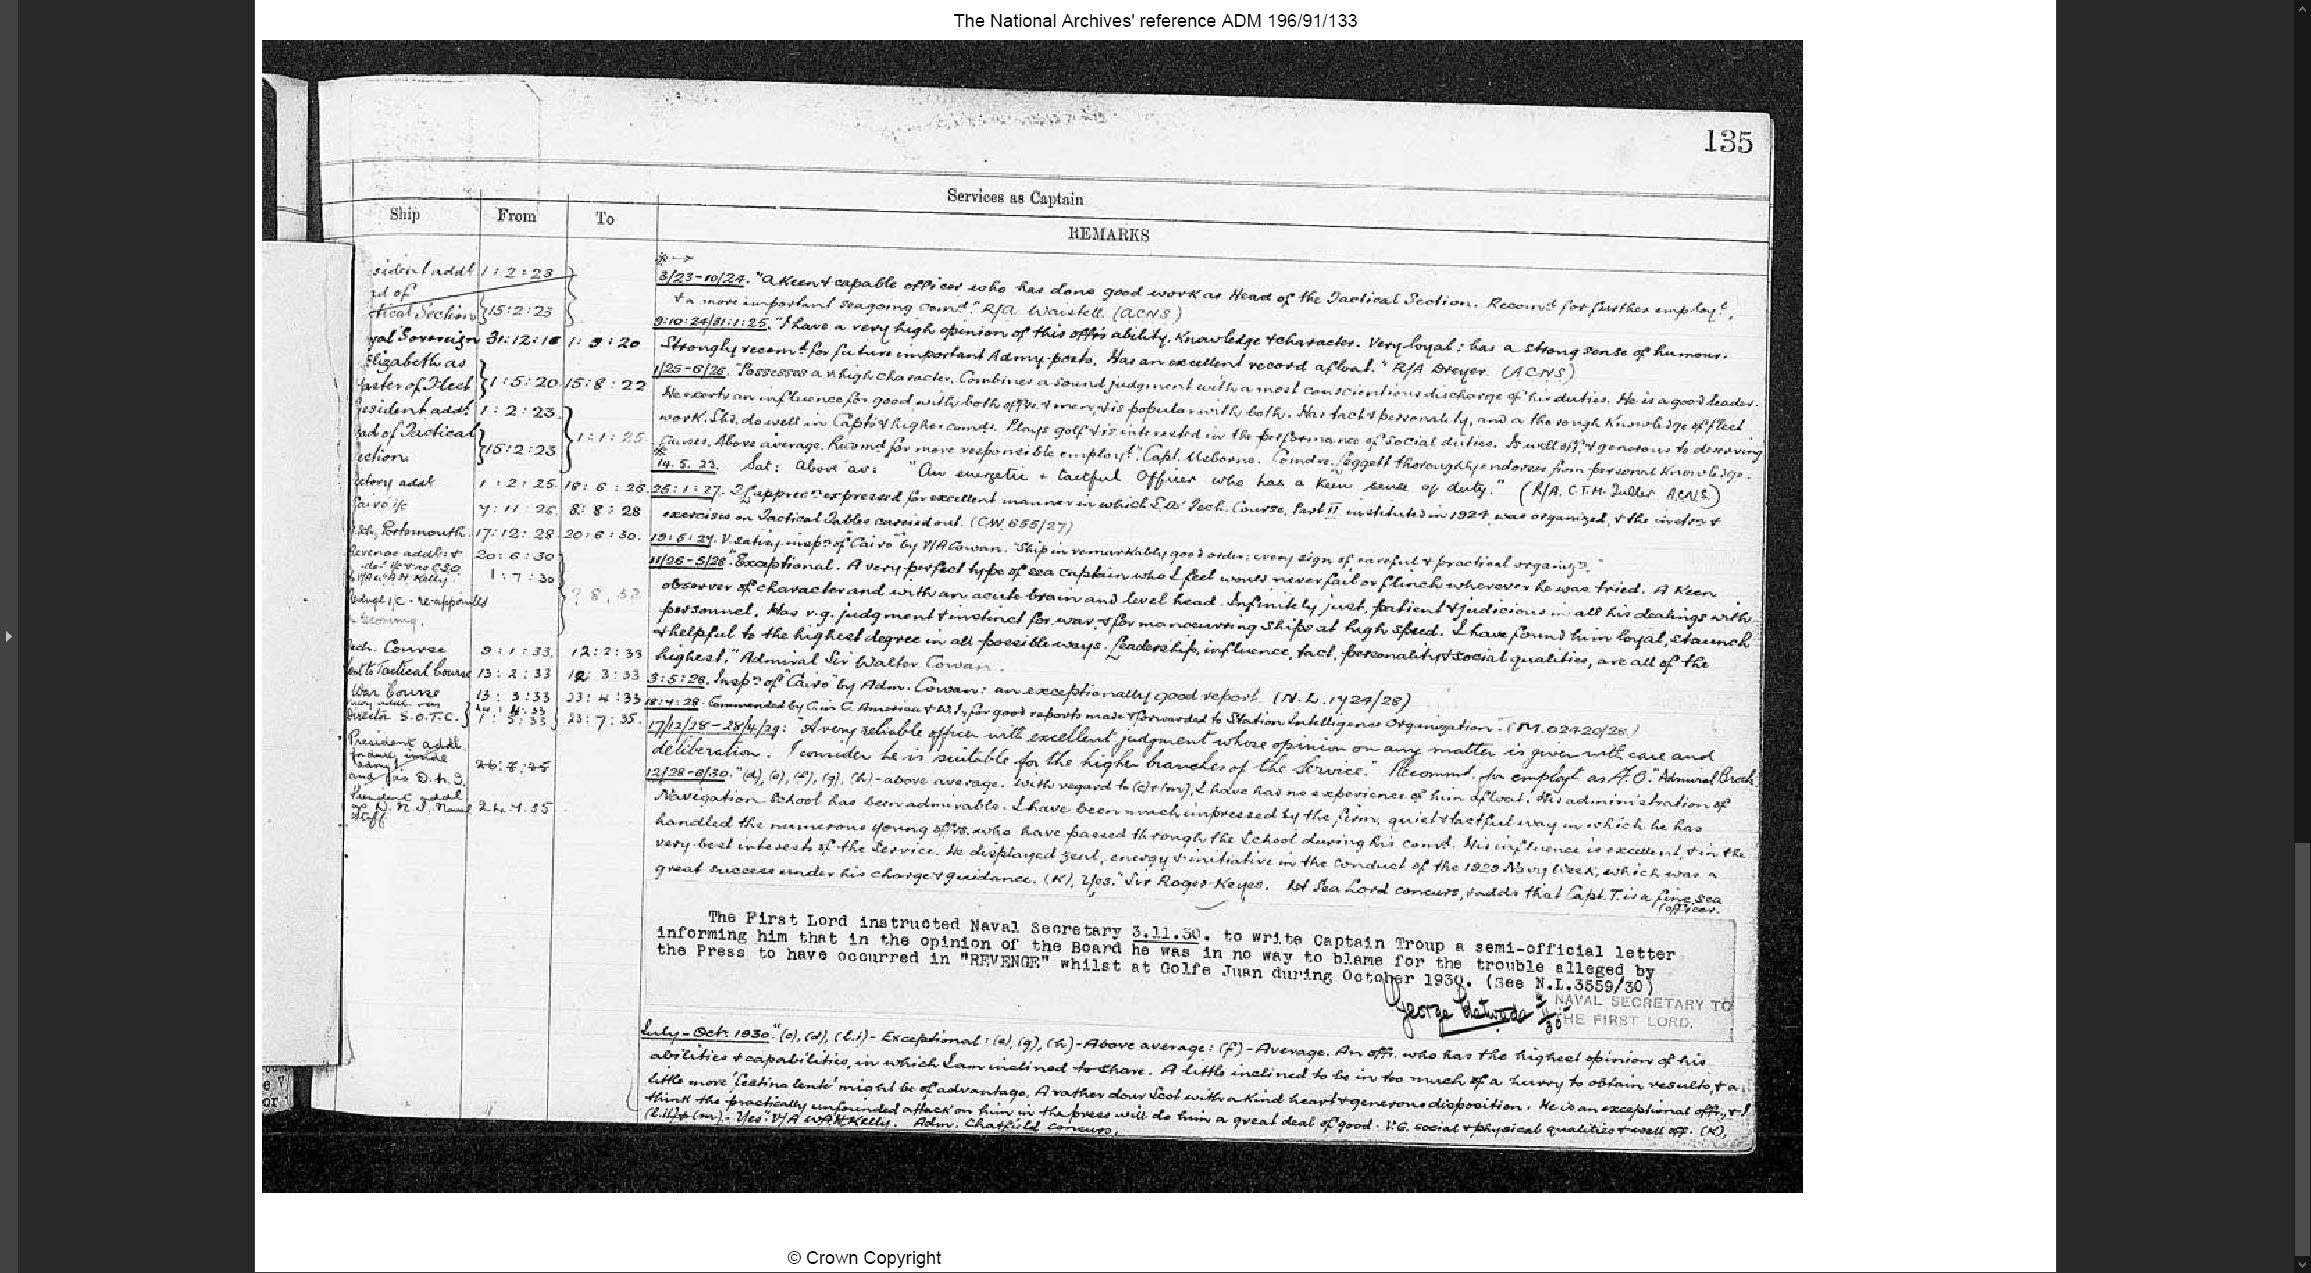 The National Archives' reference ADM 196/91/133
135
Services as Captain
Ship From To
REMARKS
sident addl 1:2:23
rd of
tical Section 15:2:23
yal Sovereign 31:12:18 1:9:20
Elizabeth as
aster of Fleet 1:5:20 15:8:22
esident addl 1:2:23
ad of Tactical
ection 15:2:23 1:1:25
ctory addl 1:2:25 18:6:26
airo i/c 7:11:26 8:8:28
Portsmouth 17:12:28 20:6:30
evenge addl 20:6:30
V/A W.A.H. Kelly 1:7:30
i/c - re-appointed
ech. Course 9:1:33 12:2:33
Tactical Course 13:2:33 3:33
War Course 13:3:33 23:4:33
Director S.O.T.C. 1:5:33 23:7:35
President addl
and as D.N.I.
President addl
D.N.I. Naval 24.7.35
Staff
3/23-10/24. "A keen & capable officer who has done good work as Head of the Tactical Section. Recomd for further employt,
& a more important seagoing comd." R/A Waistell (ACNS)
9:10:24/31:1:25. "I have a very high opinion of this offr's ability, knowledge & character. Very loyal: has a strong sense of humour.
Strongly recomd for future important Admy posts. Has an excellent record afloat." R/A Dreyer (ACNS)
1/25-6/26. "Possesses a v. high character. Combines a sound judgment with a most conscientious discharge of his duties. He is a good leader.
He exerts an influence for good with both offrs & men, & is popular with both. Has tact & personality, and a thorough knowledge of fleet
work. Shd. do well in Capt's & higher comds. Plays golf & is interested in the performance of social duties. Is well off, & generous to deserving
causes. Above average. Recomd for more responsible employt." Capt. Usborne. Comdre. Leggett thoroughly endorses from personal knowledge.
14.5.23. Sat: Above av: "An energetic & tactful Officer who has a keen sense of duty." (R/A. C.T.M. Fuller ACNS)
25:1:27. apprecn expressed for excellent manner in which Tech. Course, Part II instituted in 1924, was organized, & the &
exercises on Tactical Tables carried out. (CW.655/27)
19:5:27. V. satisy inspn of "Cairo" by V/A Cowan. "Ship in remarkably good order: every sign of careful & practical organizn."
11/26-5/28 "Exceptional. A very perfect type of sea captain who I feel would never fail or flinch wherever he was tried. A keen
observer of character and with an acute brain and level head. Infinitely just, patient & judicious in all his dealings with
personnel. Has v.g. judgment & instinct for war, & for manœuvring ships at high speed. I have found him loyal, staunch
& helpful to the highest degree in all possible ways. Leadership, influence, tact, personality & social qualities, are all of the
highest." Admiral Sir Walter Cowan.
3:5:28. Inspn of "Cairo" by Adm. Cowan: an exceptionally good report. (N.L. 1724/28)
18:7:28. Commended by C in C. America & W.I. for good reports made & forwarded to Station Intelligence Organization. (M.02420/28.)
17/12/28-28/4/29: "A very reliable officer with excellent judgment whose opinion on any matter is given with care and
deliberation. I consider he is suitable for the higher branches of the Service." Recommd. for employt as F.O. "Admiral Brock.
12/28-6/30. "(d), (e), (f), (g), (h)-above average. With regard to (c) & (m), I have had no experience of him afloat. His administration of
Navigation School has been admirable. I have been much impressed by the firm, quiet & tactful way in which he has
handled the numerous young offrs. who have passed through the School during his comd. His influence is excellent, & in the
very best interests of the Service. He displayed zeal, energy & initiative in the conduct of the 1929 Navy Week, which was a
great success under his charge & guidance. (K), Yes." Sir Roger Keyes. 1st Sea Lord concurs, & adds that Capt. T. is a fine sea
officer.
The First Lord instructed Naval Secretary 3.11.30. to write Captain Troup a semi-official letter
informing him that in the opinion of the Board he was in no way to blame for the trouble alleged by
the Press to have occurred in "REVENGE" whilst at Golfe Juan during October 1930. (See N.L.3559/30)
George
NAVAL SECRETARY TO
THE FIRST LORD.
July-Oct. 1930 "(c), (d), (l.i)- Exceptional: (e), (g), (h)-Above average: (f)-Average. An offr. who has the highest opinion of his
abilities & capabilities, in which I am inclined to share. A little inclined to be in too much of a hurry to obtain results, & a
little more 'festina lente' might be of advantage. A rather dour Scot with a kind heart & generous disposition. He is an exceptional offr., & I
think the practically unfounded attack on him in the press will do him a great deal of good. V.G. social & physical qualities & well off. (K),
(l.ii) & (m).- Yes." V/A W.A.H. Kelly. Adm. Chatfield concurs.
© Crown Copyright